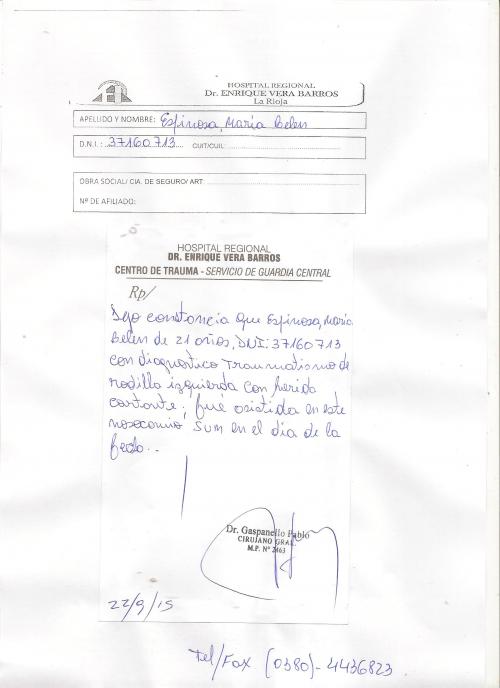 HOSPITAL REGIONAL
Dr. ENRIQUE VERA BARROS
La Rioja
APELLIDO Y NOMBRE: Espinosa, María Belen
D.N.I.: 37160713 CUIT/CUIL:
OBRA SOCIAL/ CIA. DE SEGURO/ ART:
Nº DE AFILIADO:
HOSPITAL REGIONAL
DR. ENRIQUE VERA BARROS
CENTRO DE TRAUMA - SERVICIO DE GUARDIA CENTRAL
Rp/
Dejo constancia que Espinosa, María
Belen de 21 años, DNI: 37160713
con diagnostico Traumatismo de
rodilla izquierda con herida
cortante; fué asistida en este
nosocomio en el día de la
fecha..
Dr. Gaspanello Pablo
CIRUJANO GRAL.
M.P. Nº 2463
22/9/15
Tel/Fax (0380)-4436823